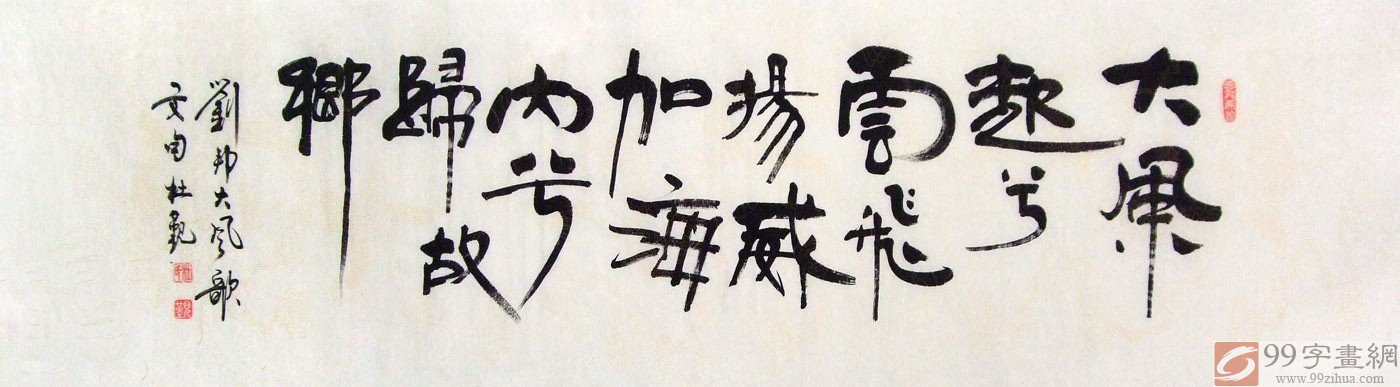 大風
起兮
雲飛
揚威
加海
內兮
歸故
鄉
劉邦大風歌
文 杜
99字畫網
www.99zihua.com